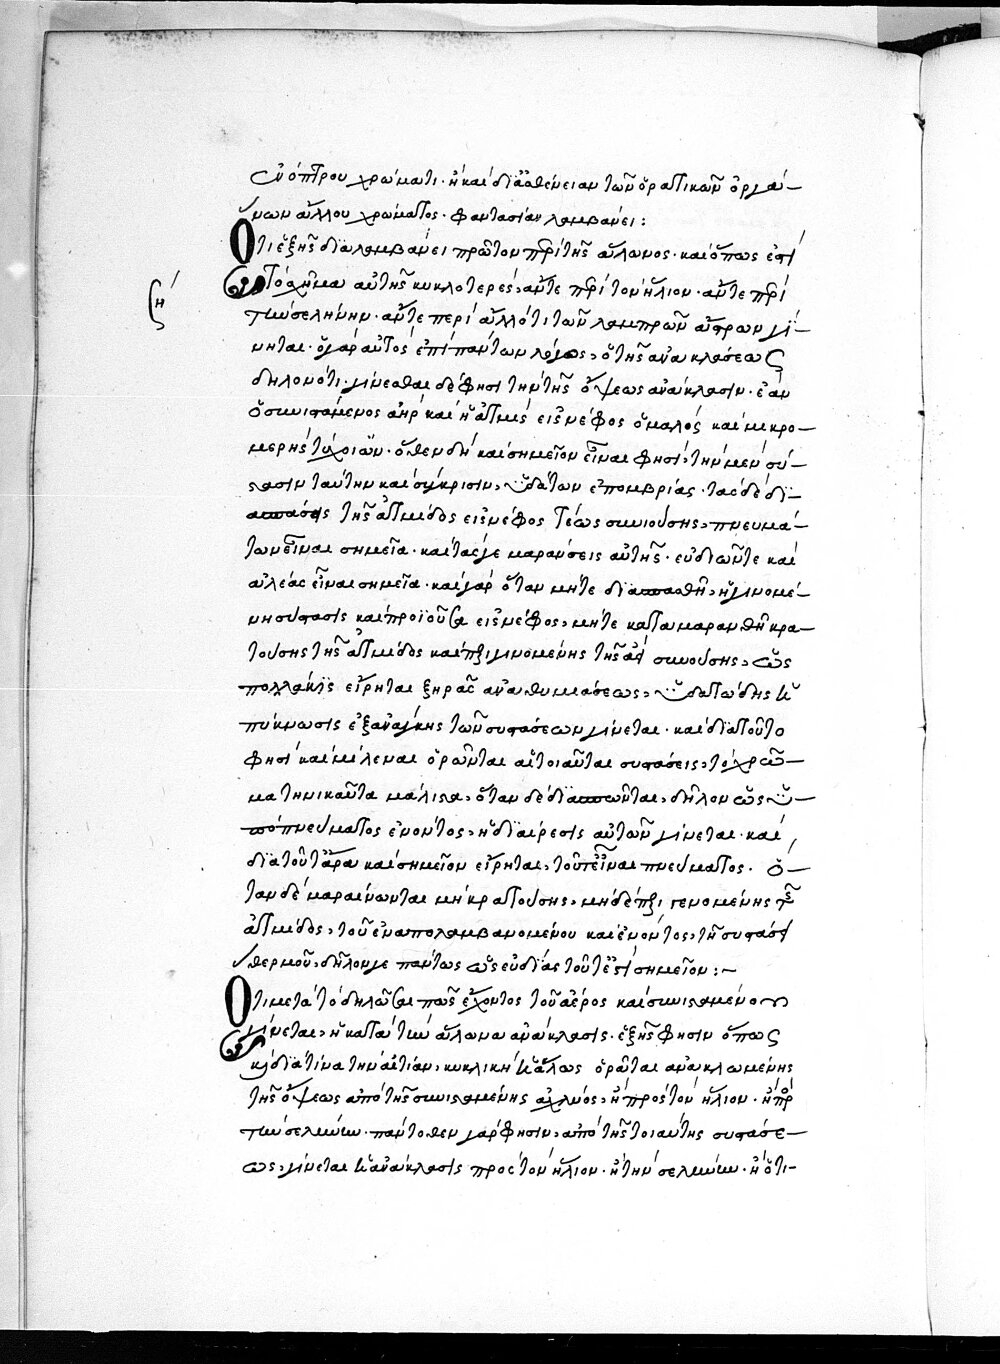 ἐνόπτρου χρώματι· ἢ καὶ δι' ἀσθένειαν τῶν ὁρατικῶν ὀργά-
νων ἄλλου χρώματος· φαντασίαν λαμβάνει:
Ὅτι ἑξῆς διαλαμβάνει πρῶτον περὶ τῆς ἅλωνος· καὶ ὅπως ἐστὶ
τὸ σχῆμα αὐτῆς κυκλοτερές, ἄν τε περὶ τὸν ἥλιον· ἄν τε περὶ
ζή
τὴν σελήνην· ἄν τε περὶ ἄλλό τι τῶν λαμπρῶν ἄστρων γί-
νηται· ὁ γὰρ αὐτὸς ἐπὶ πάντων λόγος, ὁ τῆς ἀνακλάσεως
δηλονότι· γίνεσθαι δέ φησι τὴν τῆς ὄψεως ἀνάκλασιν· ἐὰν
ὁ συνιστάμενος ἀὴρ καὶ ἡ ἀτμὶς εἰς νέφος ὁμαλὸς καὶ μικρο-
μερὴς τύχοι ὤν· ὅθεν δὴ καὶ σημεῖον εἶναί φησι, τὴν μὲν σύ-
στασιν ταύτην καὶ σύγκρισιν, ὑδάτων ἐπομβρίας· τὰς δὲ δι-
ασπάσεις τῆς ἀτμίδος εἰς νέφος τέως συνιούσης, πνευμά-
των εἶναι σημεῖα· καὶ τάς γε μαράνσεις αὐτῆς· εὐδιῶν τε καὶ
ἀλέας εἶναι σημεῖα· καὶ γὰρ ὅταν μήτε διασπασθῇ, ἡ γινομέ-
νη σύστασις καὶ προϊοῦσα εἰς νέφος, μήτε καταμαρανθῇ κρα-
τούσης τῆς ἀτμίδος καὶ ἐπιγινομένης τῆς ἀεὶ συνιούσης, ὡς
πολλάκις εἴρηται ξηρᾶς ἀναθυμιάσεως, ὑδατώδης ἡ
πύκνωσις ἐξ ἀνάγκης τῶν συστάσεων γίνεται· καὶ διὰ τοῦτο
φησὶ καὶ μέλεναι ὁρῶνται αἱ τοιαῦται συστάσεις, τὸ χρῶ-
μα τηνικαῦτα μάλιστα, ὅταν δὲ διασπῶνται, δῆλον ὡς ὑ-
πὸ πνεύματος ἐνόντος, ἡ διαίρεσις αὐτῶν γίνεται· καὶ
διὰ τοῦτ' ἄρα καὶ σημεῖον εἴρηται, τοῦτ' εἶναι πνεύματος· ὅ-
ταν δὲ μαραίνωνται μὴ κρατούσης, μηδὲ ἐπιγενομένης τῆς
ἀτμίδος, τοῦ ἐναπολαμβανομένου καὶ ἐνόντος, τῇ συστάσει
θερμοῦ, δῆλόν γε πάντως ὡς εὐδίας τοῦτ' ἐστὶ σημεῖον:-
Ὅτι μετὰ τὸ δηλῶσαι πῶς ἔχοντος τοῦ ἀέρος καὶ συνισταμένου
γίνεται, ἡ κατὰ τὴν ἅλωνα ἀνάκλασις· ἑξῆς φησιν ὅπως
καὶ διὰ τίνα τὴν αἰτίαν, κυκλικὴ ἡ ἅλως ὁρᾶται ἀνακλωμένης
τῆς ὄψεως ἀπὸ τῆς συνισταμένης ἀχλύος, ἢ πρὸς τὸν ἥλιον· ἢ πρὸς
τὴν σελήνην· πάντοθεν γάρ φησιν, ἀπὸ τῆς τοιαύτης συστάσε-
ως, γίνεται ἡ ἀνάκλασις πρὸς τὸν ἥλιον· ἢ τὴν σελήνην· ἢ ὅτι-